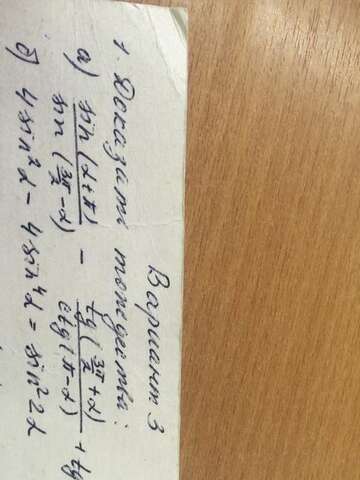 Вариант 3
1. Доказать тождества:
а) sin(α+π)/sin(3π/2-α) - tg(3π/2+α)/ctg(π-α) + tg
б) 4sin²α - 4sin⁴α = sin²2α